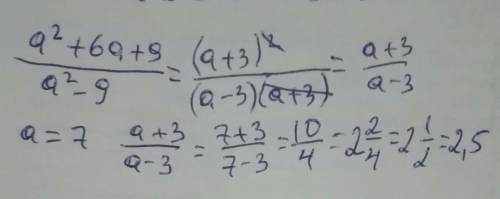 (a²+6a+9)/(a²-9) = (a+3)²/((a-3)(a+3)) = (a+3)/(a-3)
a=7 (a+3)/(a-3) = (7+3)/(7-3) = 10/4 = 2 2/4 = 2 1/2 = 2,5